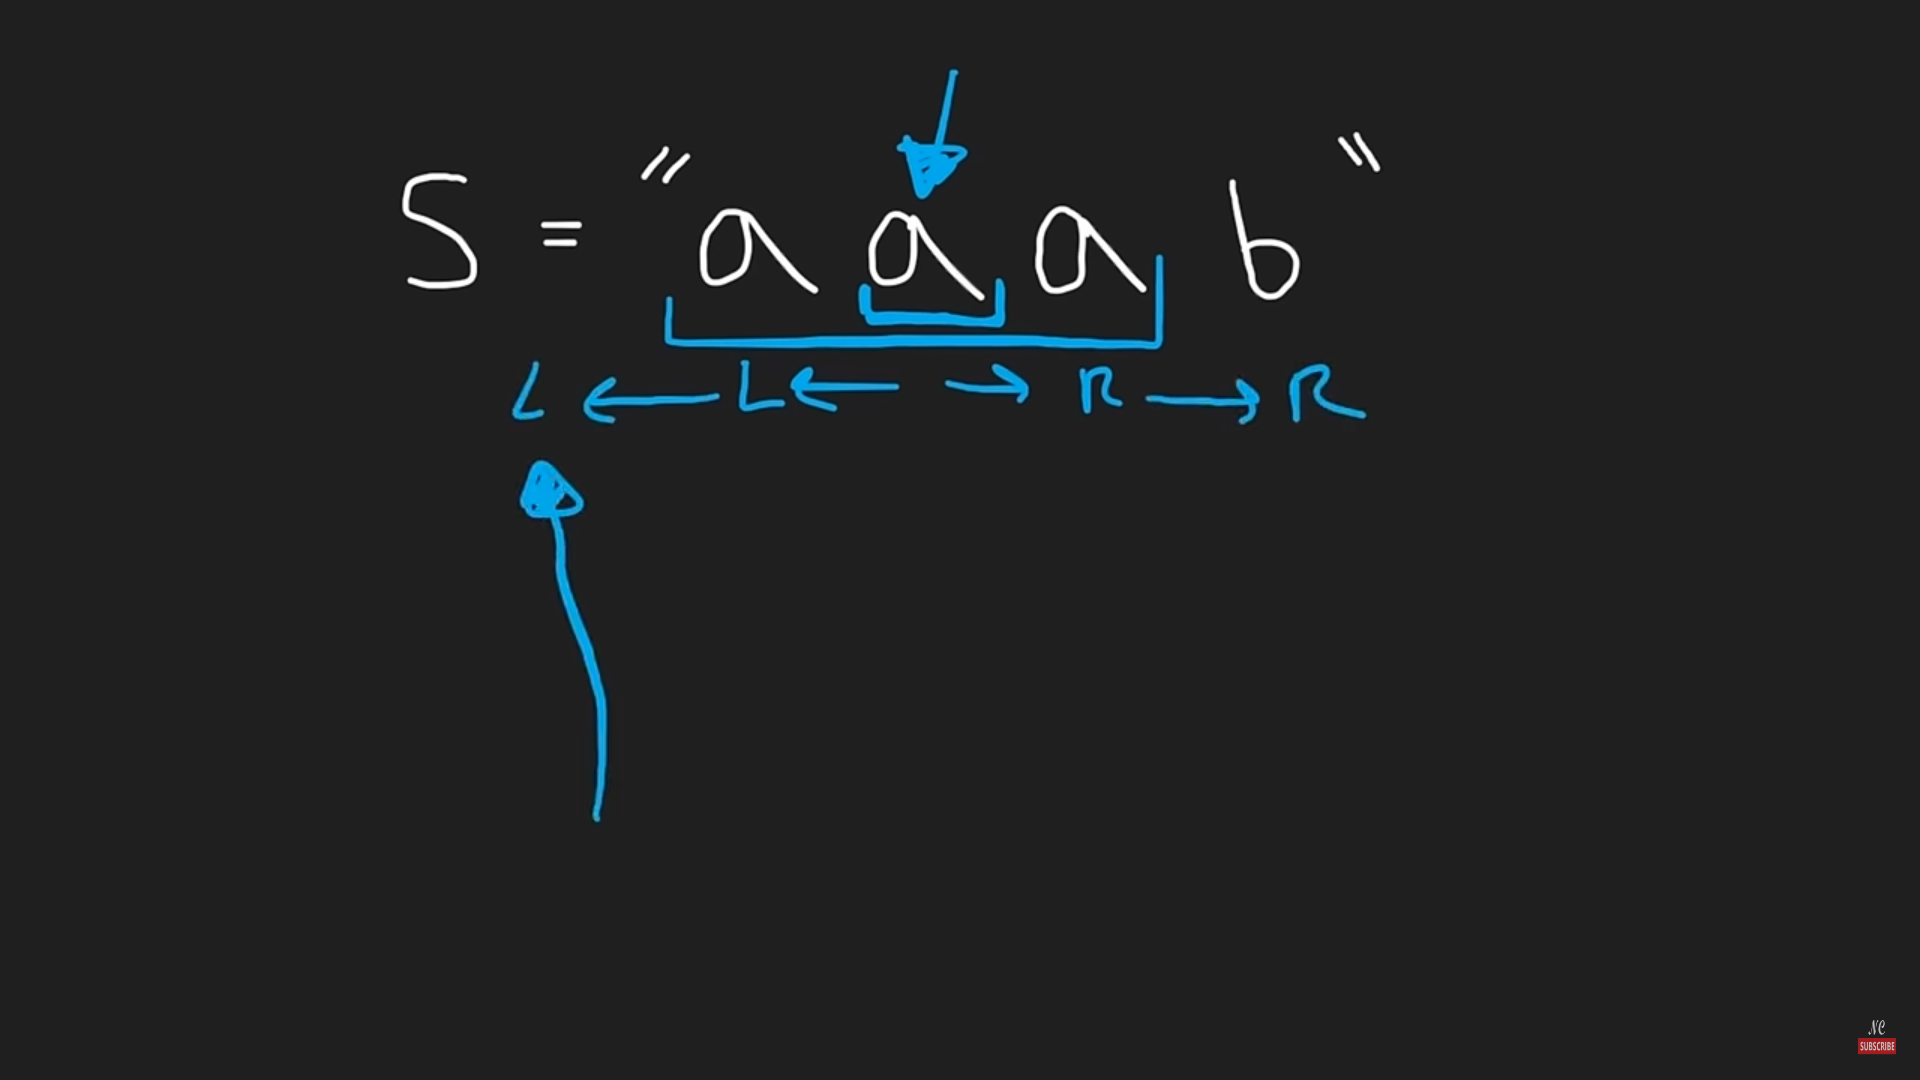 S = "a a a b"
L ← L ← → R → R
NC
SUBSCRIBE